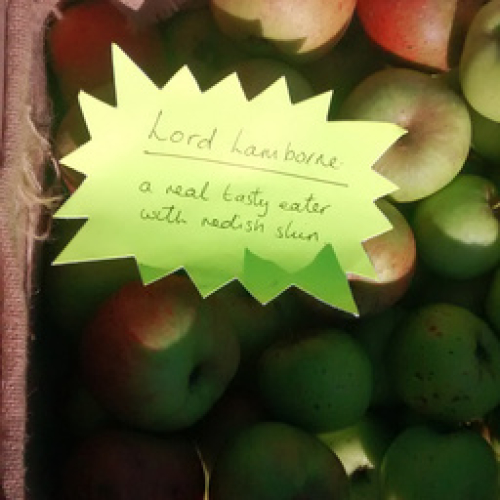 Lord Lamborne
a real tasty eater
with redish skin